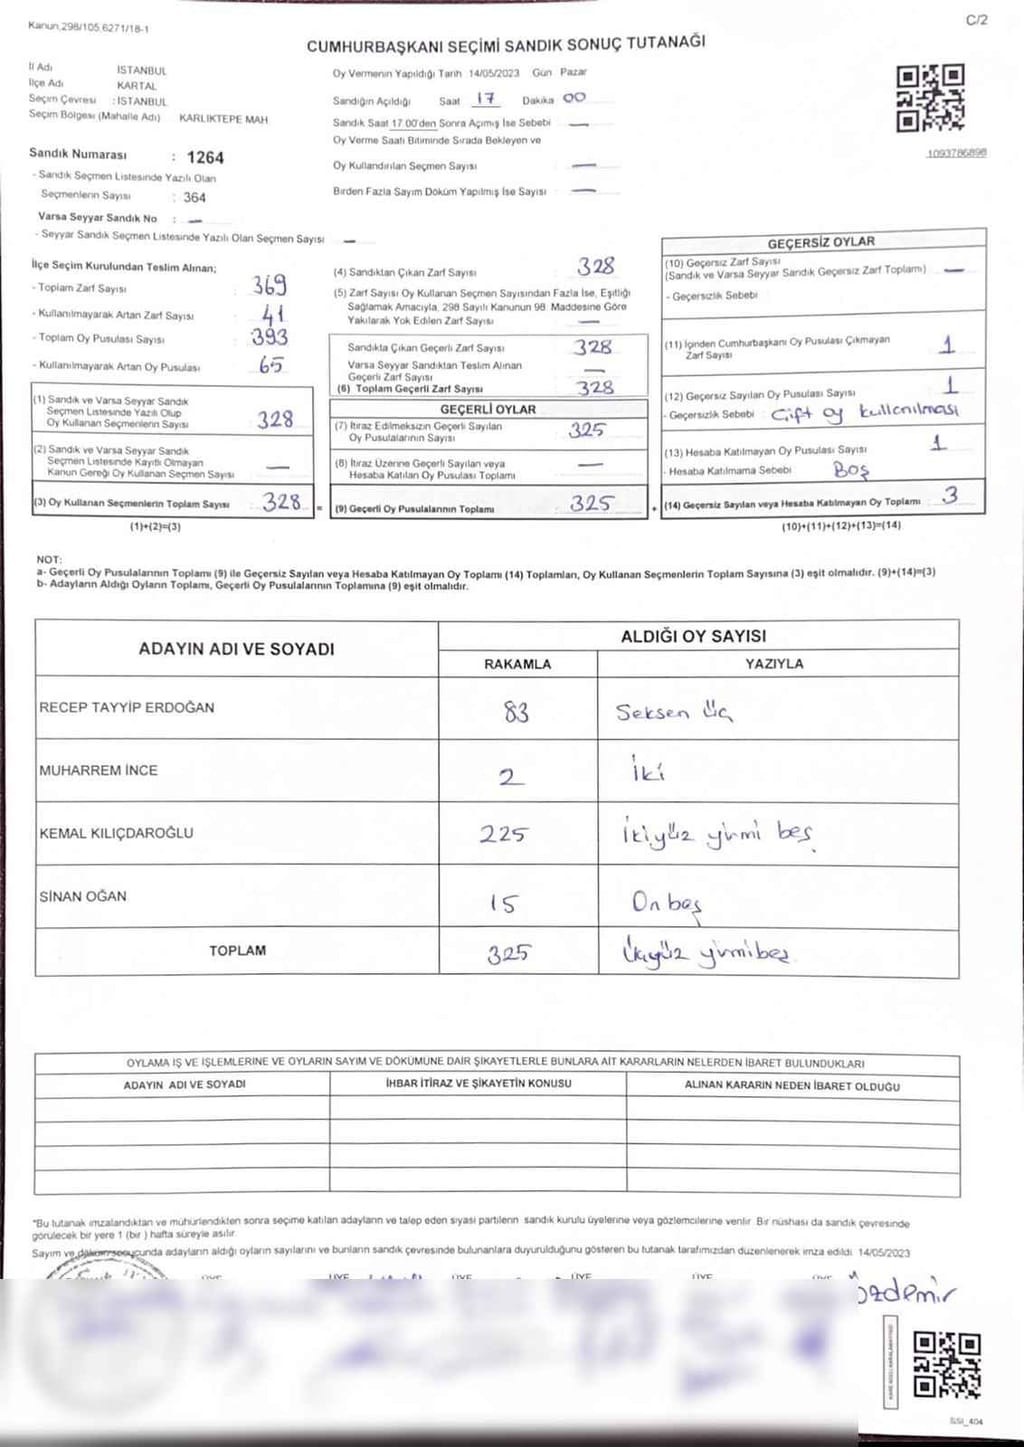 Kanun,298/105,6271/18-1
C/2
CUMHURBAŞKANI SEÇİMİ SANDIK SONUÇ TUTANAĞI
İl Adı İSTANBUL
İlçe Adı KARTAL
Seçim Çevresi : İSTANBUL
Seçim Bölgesi (Mahalle Adı) KARLIKTEPE MAH
Sandık Numarası : 1264
- Sandık Seçmen Listesinde Yazılı Olan
Seçmenlerin Sayısı : 364
Varsa Seyyar Sandık No : —
- Seyyar Sandık Seçmen Listesinde Yazılı Olan Seçmen Sayısı —
Oy Vermenin Yapıldığı Tarih 14/05/2023 Gün Pazar
Sandığın Açıldığı Saat 17 Dakika 00
Sandık Saat 17 00'den Sonra Açımış İse Sebebi —
Oy Verme Saati Bitiminde Sırada Bekleyen ve
Oy Kullandırılan Seçmen Sayısı —
Birden Fazla Sayım Döküm Yapılmış İse Sayısı —
1093786898
İlçe Seçim Kurulundan Teslim Alınan;
- Toplam Zarf Sayısı : 369
- Kullanılmayarak Artan Zarf Sayısı : 41
- Toplam Oy Pusulası Sayısı : 393
- Kullanılmayarak Artan Oy Pusulası : 65
(1) Sandık ve Varsa Seyyar Sandık
Seçmen Listesinde Yazılı Olup
Oy Kullanan Seçmenlerin Sayısı 328
(2) Sandık ve Varsa Seyyar Sandık
Seçmen Listesinde Kayıtlı Olmayan
Kanun Gereği Oy Kullanan Seçmen Sayısı —
(3) Oy Kullanan Seçmenlerin Toplam Sayısı 328 =
(1)+(2)=(3)
(4) Sandıktan Çıkan Zarf Sayısı 328
(5) Zarf Sayısı Oy Kullanan Seçmen Sayısından Fazla İse, Eşitliği
Sağlamak Amacıyla, 298 Sayılı Kanunun 98. Maddesine Göre
Yakılarak Yok Edilen Zarf Sayısı —
Sandıkta Çıkan Geçerli Zarf Sayısı 328
Varsa Seyyar Sandıktan Teslim Alınan
Geçerli Zarf Sayısı —
(6) Toplam Geçerli Zarf Sayısı 328
GEÇERLİ OYLAR
(7) İtiraz Edilmeksizin Geçerli Sayılan
Oy Pusulalarının Sayısı 325
(8) İtiraz Üzerine Geçerli Sayılan veya
Hesaba Katılan Oy Pusulası Toplamı —
(9) Geçerli Oy Pusulalarının Toplamı 325 +
GEÇERSİZ OYLAR
(10) Geçersiz Zarf Sayısı
(Sandık ve Varsa Seyyar Sandık Geçersiz Zarf Toplamı) —
- Geçersizlik Sebebi
(11) İçinden Cumhurbaşkanı Oy Pusulası Çıkmayan
Zarf Sayısı 1
(12) Geçersiz Sayılan Oy Pusulası Sayısı 1
- Geçersizlik Sebebi : Çift oy kullanılması
(13) Hesaba Katılmayan Oy Pusulası Sayısı 1
- Hesaba Katılmama Sebebi Boş
(14) Geçersiz Sayılan veya Hesaba Katılmayan Oy Toplamı 3
(10)+(11)+(12)+(13)=(14)
NOT:
a- Geçerli Oy Pusulalarının Toplamı (9) ile Geçersiz Sayılan veya Hesaba Katılmayan Oy Toplamı (14) Toplamları, Oy Kullanan Seçmenlerin Toplam Sayısına (3) eşit olmalıdır. (9)+(14)=(3)
b- Adayların Aldığı Oyların Toplamı, Geçerli Oy Pusulalarının Toplamına (9) eşit olmalıdır.
ADAYIN ADI VE SOYADI
ALDIĞI OY SAYISI
RAKAMLA YAZIYLA
RECEP TAYYİP ERDOĞAN 83 Seksen Üç
MUHARREM İNCE 2 İki
KEMAL KILIÇDAROĞLU 225 İkiyüz yirmi beş
SİNAN OĞAN 15 On beş
TOPLAM 325 Üçyüz yirmibeş
OYLAMA İŞ VE İŞLEMLERİNE VE OYLARIN SAYIM VE DÖKÜMÜNE DAİR ŞİKAYETLERLE BUNLARA AİT KARARLARIN NELERDEN İBARET BULUNDUKLARI
ADAYIN ADI VE SOYADI İHBAR İTİRAZ VE ŞİKAYETİN KONUSU ALINAN KARARIN NEDEN İBARET OLDUĞU
*Bu tutanak imzalandıktan ve mühürlendikten sonra seçime katılan adayların ve talep eden siyasi partilerin sandık kurulu üyelerine veya gözlemcilerine verilir. Bir nüshası da sandık çevresinde
görülecek bir yere 1 (bir) hafta süreyle asılır.
Sayım ve döküm sonucunda adayların aldığı oyların sayılarını ve bunların sandık çevresinde bulunanlara duyurulduğunu gösteren bu tutanak tarafımızdan düzenlenerek imza edildi. 14/05/2023
ÜYE ÜYE ÜYE ÜYE
Özdemir
SSI_404